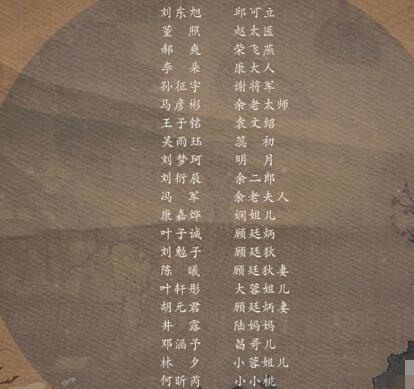 刘东旭 邱可立
董照 赵太医
郝爽 荣飞燕
李朵 康大人
孙征宇 谢将军
马彦彬 余老太师
王子铭 袁文绍
吴雨珏 蕊初
刘梦珂 明月
刘衍辰 余二郎
冯军 余老夫人
康嘉烨 娴姐儿
叶子诚 顾廷炳
刘勉子 顾廷狄
陈曦 顾廷狄妻
叶轩彤 大蓉姐儿
胡元君 顾廷炳妻
井露 陆妈妈
邓涵予 昌哥儿
林夕 小蓉姐儿
何昕芮 小小桃